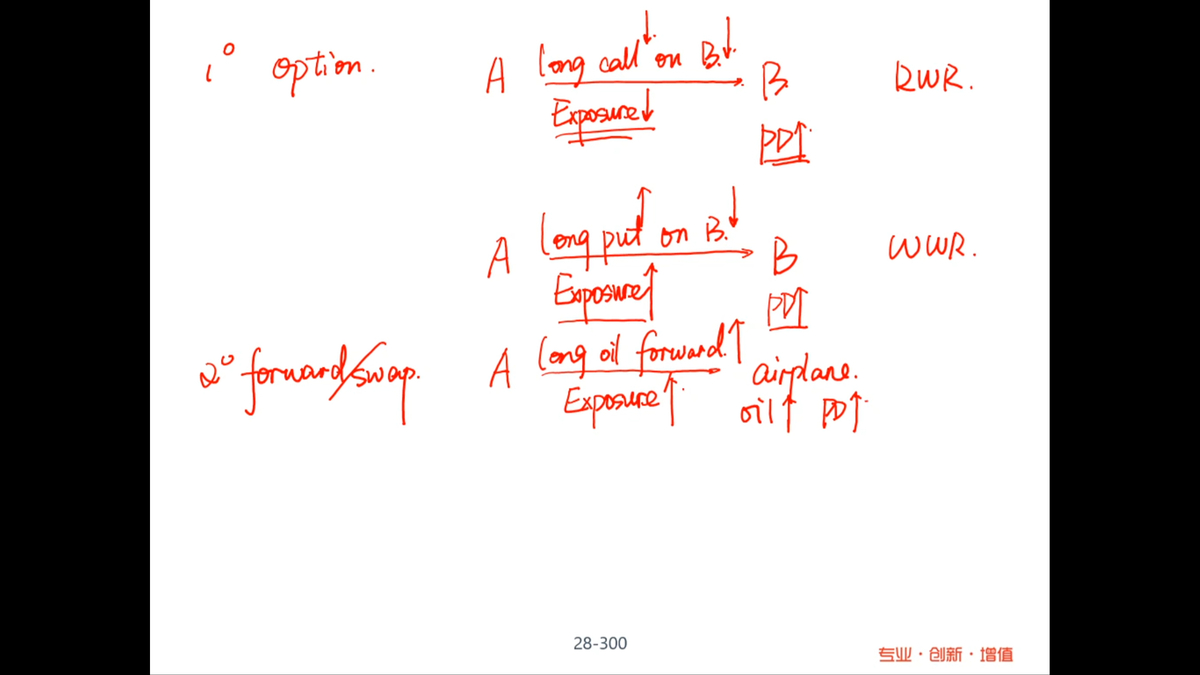 1° option. A long call↓ on B.↓ B RWR.
Exposure↓
PD↑
A long put↑ on B.↓ B WWR.
Exposure↑
PD↑
2° forward/swap. A long oil forward.↑ airplane.
Exposure↑ oil↑ PD↑
28-300
专业·创新·增值